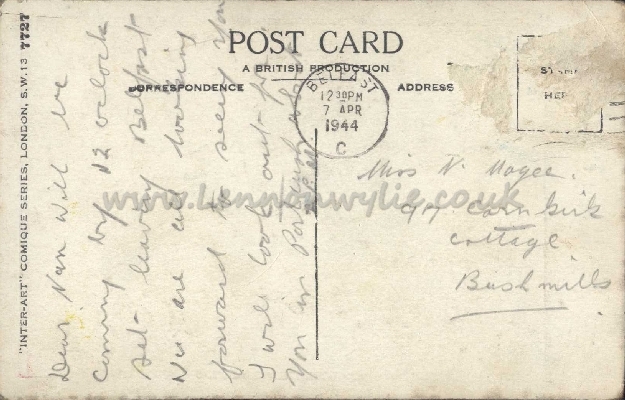 "INTER-ART" COMIQUE SERIES, LONDON, S.W.13 7727
POST CARD
A BRITISH PRODUCTION
CORRESPONDENCE
ADDRESS
BELFAST
12 30 PM
7 APR
1944
C
STAMP
HERE
Dear Nan Will be
coming by 12 oclock
set leaving Belfast
We are all looking
forward to seeing you
I will look out for
you in
Miss N. Magee
Carnkirk
Cottage
Bushmills
www.Lennonwylie.co.uk